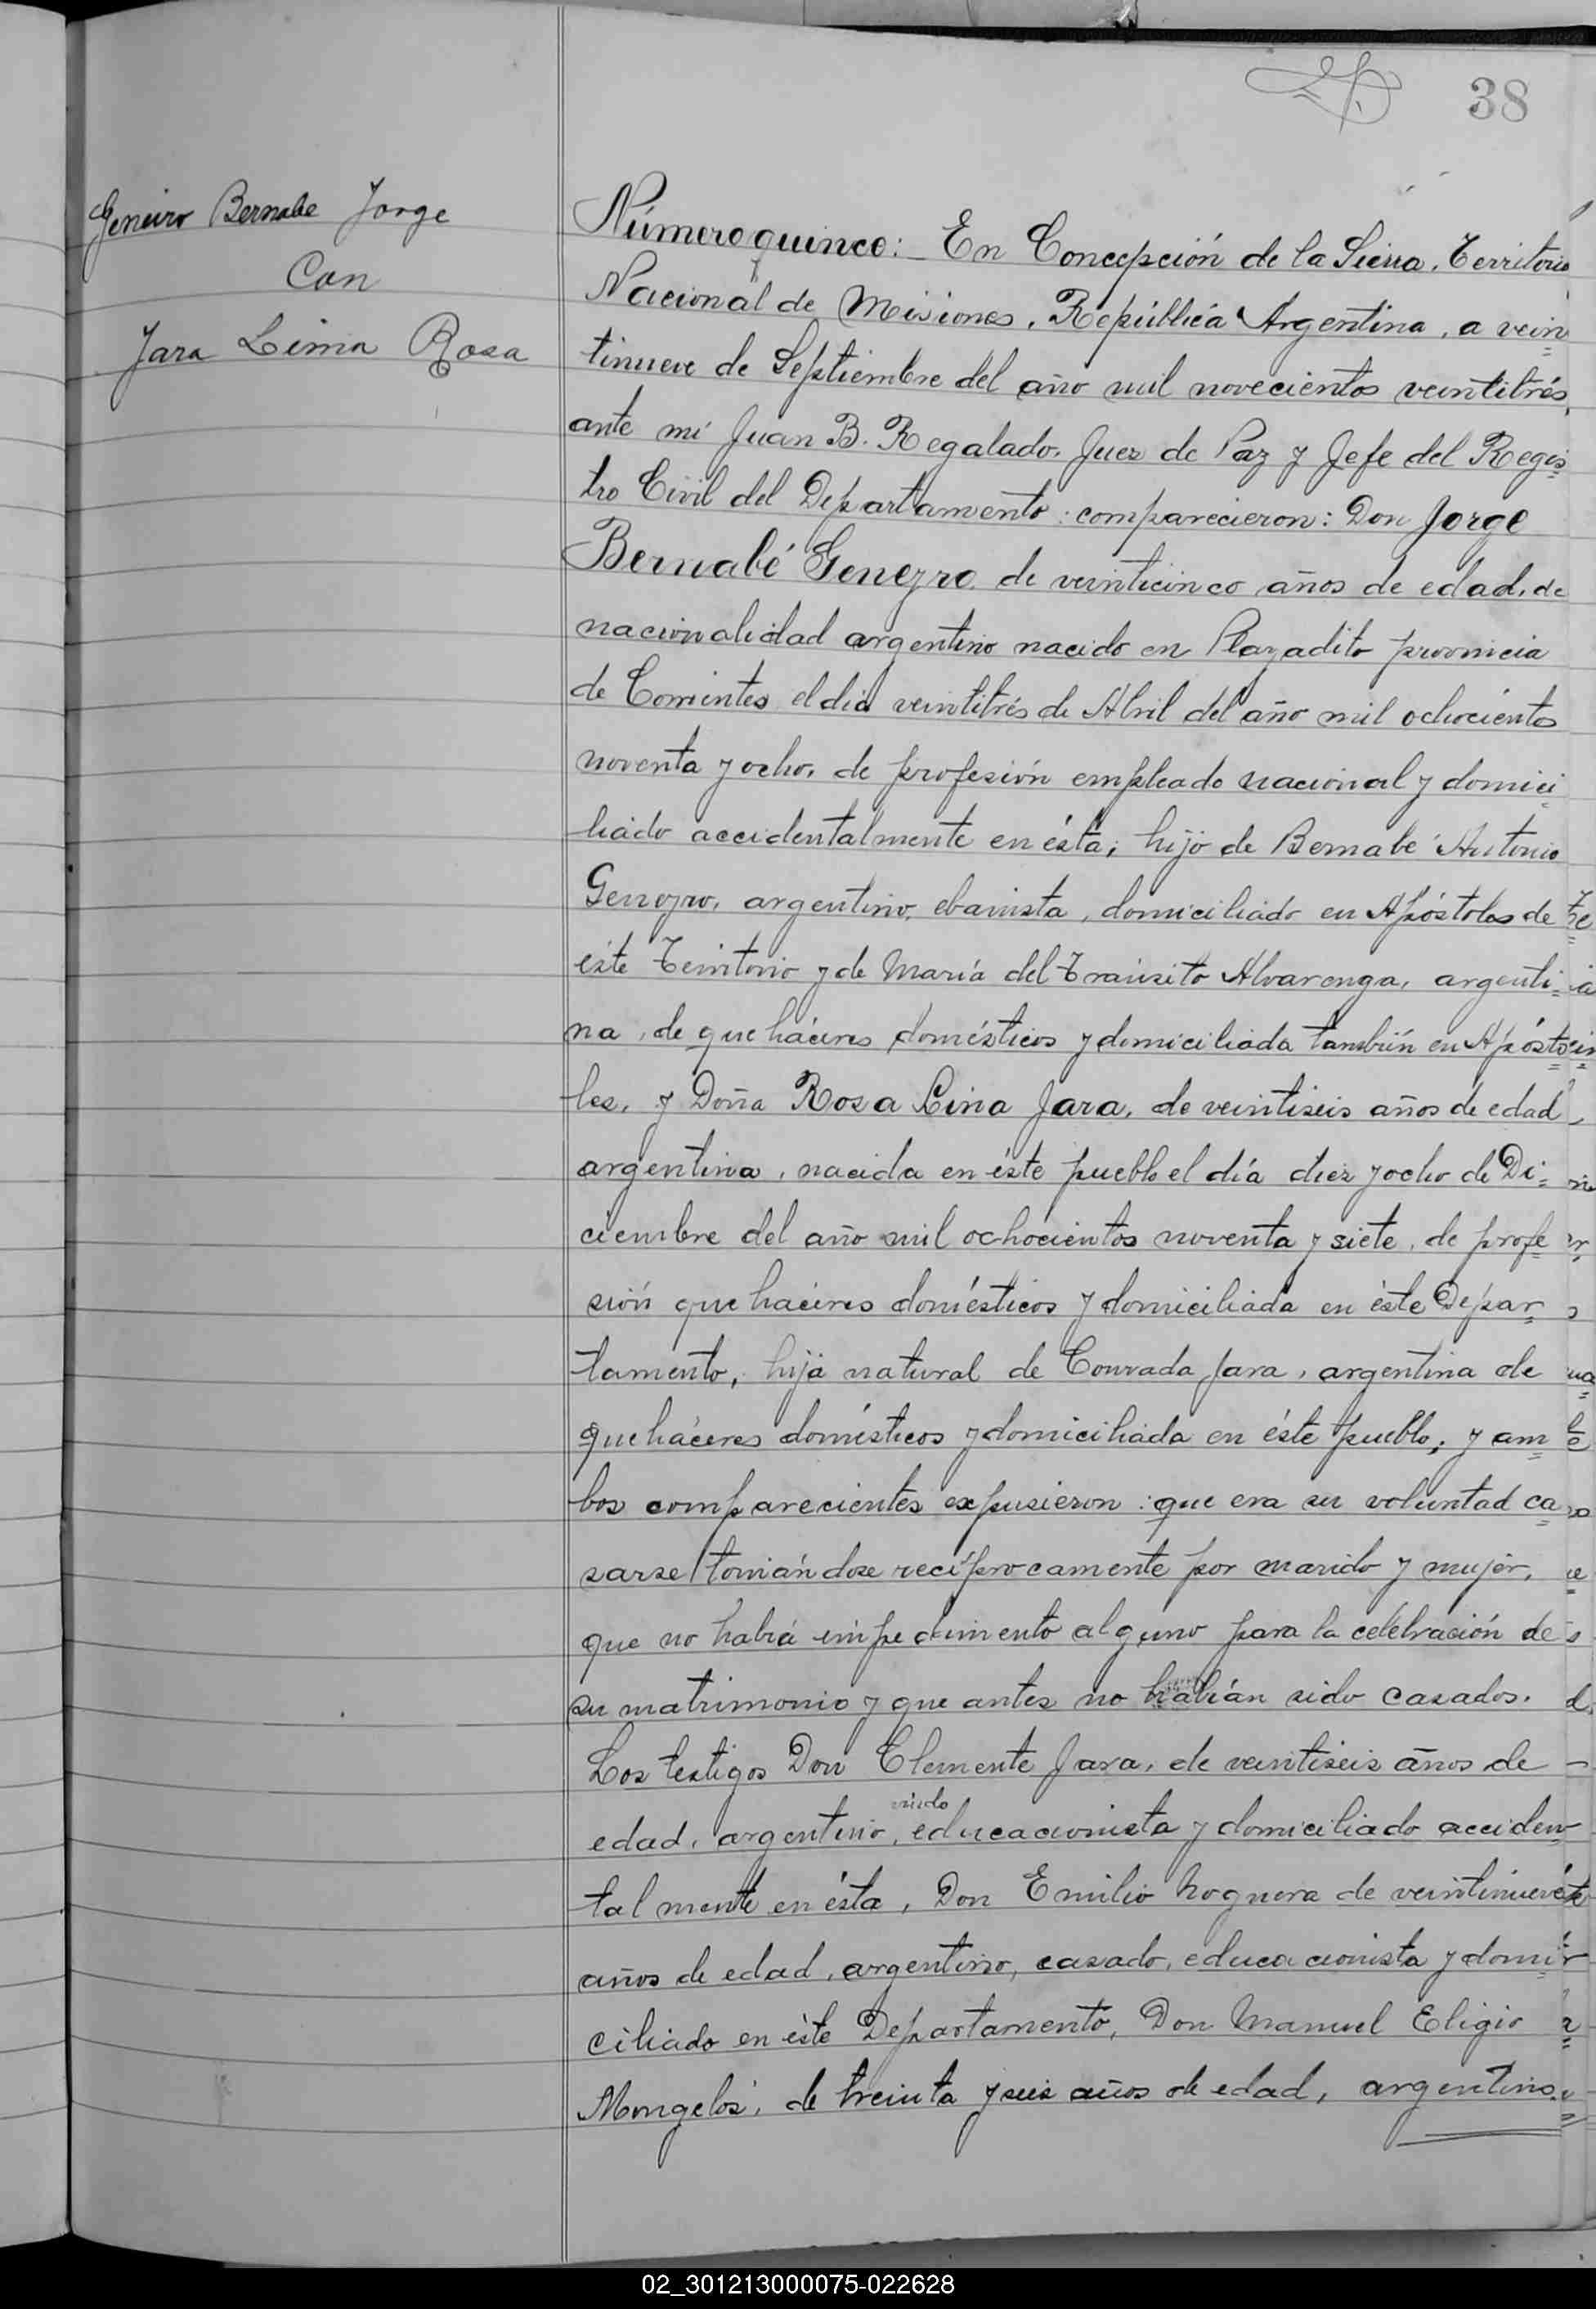 38
Geneiro Bernabe Jorge
Con
Jara Lima Rosa
Número quince: En Concepción de la Sierra, Territorio
Nacional de Misiones, República Argentina, a vein
tinueve de Septiembre del año mil novecientos veintitrés,
ante mi Juan B. Regalado, Juez de Paz y Jefe del Regis
tro Civil del Departamento: comparecieron: Don Jorge
Bernabé Geneyro, de veinticinco años de edad, de
nacionalidad argentino nacido en Playadito provincia
de Corrientes el día veintitrés de Abril del año mil ochocientos
noventa y ocho, de profesión empleado nacional y domici
liado accidentalmente en ésta; hijo de Bernabé Antonio
Geneyro, argentino, ebanista, domiciliado en Apóstoles de
éste Territorio y de María del Tránsito Alvarenga, argenti=
na, de quehaceres domésticos y domiciliada también en Apósto
les, y Doña Rosa Lina Jara, de veintiseis años de edad
argentina, nacida en éste pueblo el día diez y ocho de Di=
ciembre del año mil ochocientos noventa y siete, de profe
sión quehaceres domésticos y domiciliada en éste Depar
tamento, hija natural de Conrada Jara, argentina de
quehaceres domésticos y domiciliada en éste pueblo; y am
bos comparecientes expusieron: que era su voluntad ca
sarse tomándose recíprocamente por marido y mujer,
que no había impedimento alguno para la celebración de
su matrimonio y que antes no habían sido casados.
Los testigos Don Clemente Jara, de veintiseis años de
viudo
edad, argentino, educacionista y domiciliado acciden
talmente en ésta, Don Emilio Noguera de veintinueve
años de edad, argentino, casado, educacionista y domi
ciliado en éste Departamento, Don Manuel Eligio
Mongelós, de treinta y seis años de edad, argentino,
02_301213000075-022628